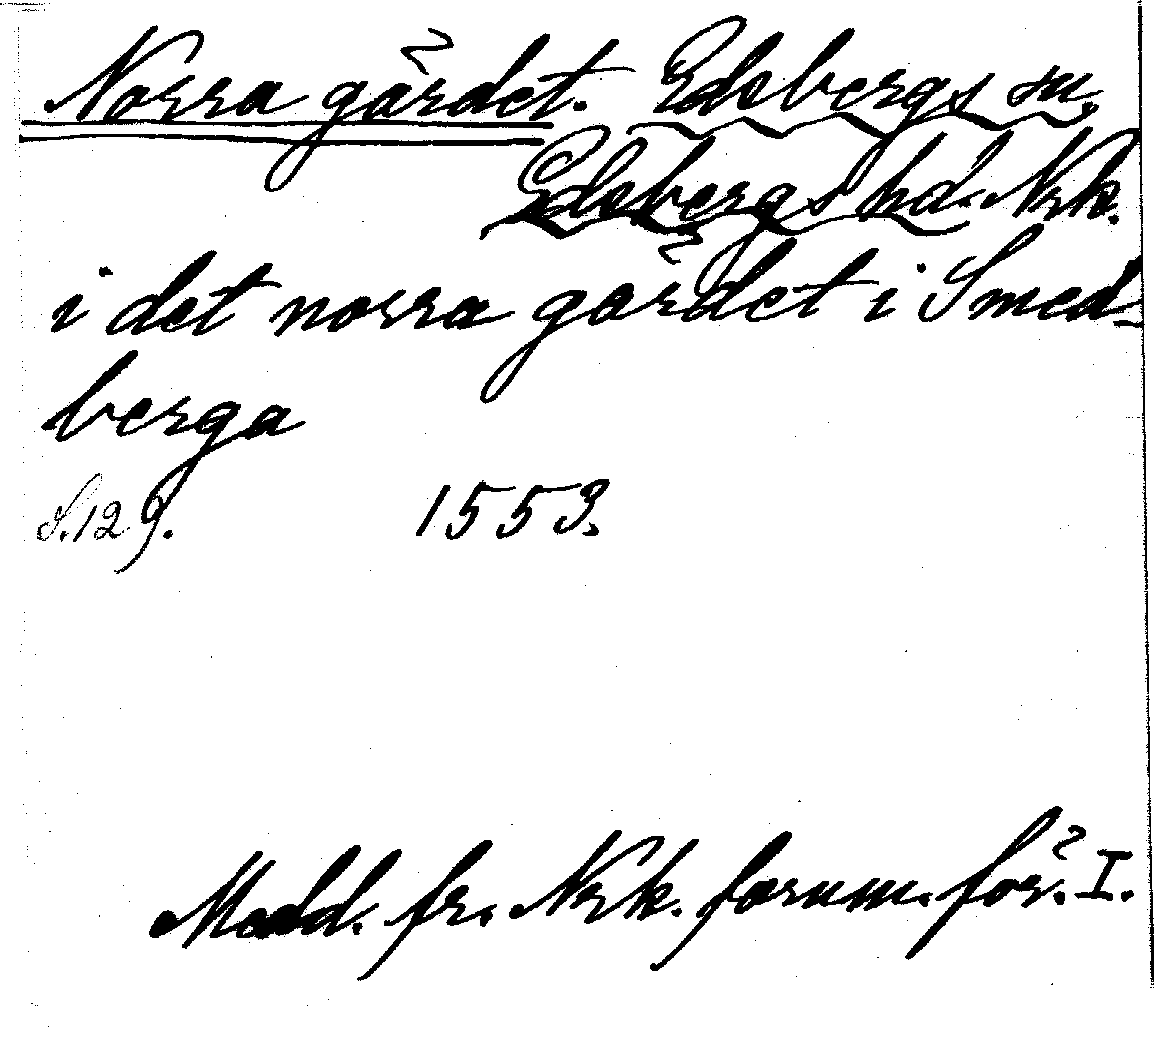 Norra gärdet. Edsbergs sn,
Edsbergs hd. Nrk.
i det norra gärdet i Smed-
berga
S. 129. 1553.
Medd. fr. Nrk. fornm. för. I.